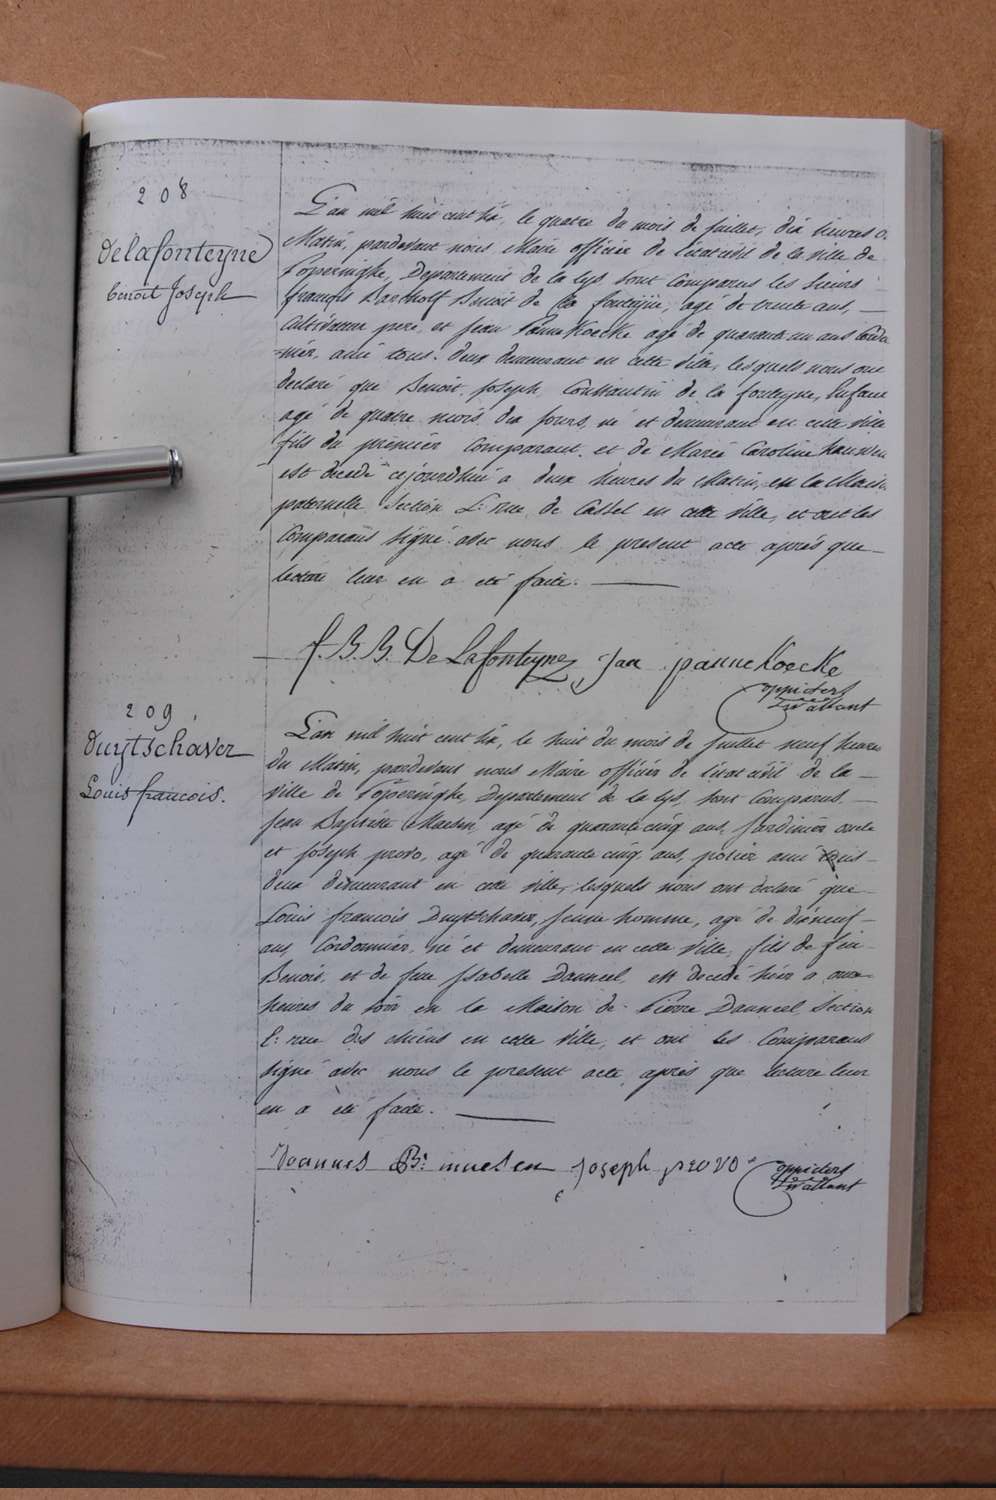 208
Delafonteyne
benoit Joseph
L'an mil huit cent dix, le quatre du mois de juillet, dix heures du
Matin, pardevant nous Maire officier de l'état civil de la ville de
Poperinghe, Département de la lys sont comparus les Sieurs
françois Bartholf Benoit de la fonteyne, agé de trente ans,
Cultivateur pere, et Jean PanneKoecke agé de quarante un ans Cordo
nier, ami tous-deux demeurant en cette ville, lesquels nous ont
declaré que Benoit Joseph Constantin de la fonteyne, Enfant
agé de quatre mois dix jours, né et demeurant en cette ville
fils du premier Comparant, et de Marie Caroline
est decedé cejourdhui a deux heures du Matin, en la Maison
paternelle Section L: rue de Cassel en cette ville, et ont les
Comparans signé avec nous le present acte après que
lecture leur en a été faite.
f. B. B. De Lafonteyne Jan panneKoecke
209
Duytschaver
Louis francois.
L'an mil huit cent dix, le huit du mois de Juillet neuf heures
du Matin, pardevant nous Maire officier de l'état civil de la
ville de Poperinghe, Département de la lys, sont Comparus
Jean Baptiste Maesen, agé de quarante cinq ans, Jardinier oncle
et Joseph provo, agé de quarante cinq ans, potier ami tous-
deux demeurant en cette ville, lesquels nous ont declaré que
Louis francois Duytschaver, jeune homme, agé de dixneuf
ans Cordonnier, né et demeurant en cette ville, fils de feu
Benoit, et de feue Isabelle Danneel, est decedé hier a onze
heures du soir en la Maison de Pierre Danneel, Section
L: rue des chiens en cette ville, et ont les Comparans
signé avec nous le present acte, après que lecture leur
en a été faite.
Joannes Bt: maesen Joseph provo